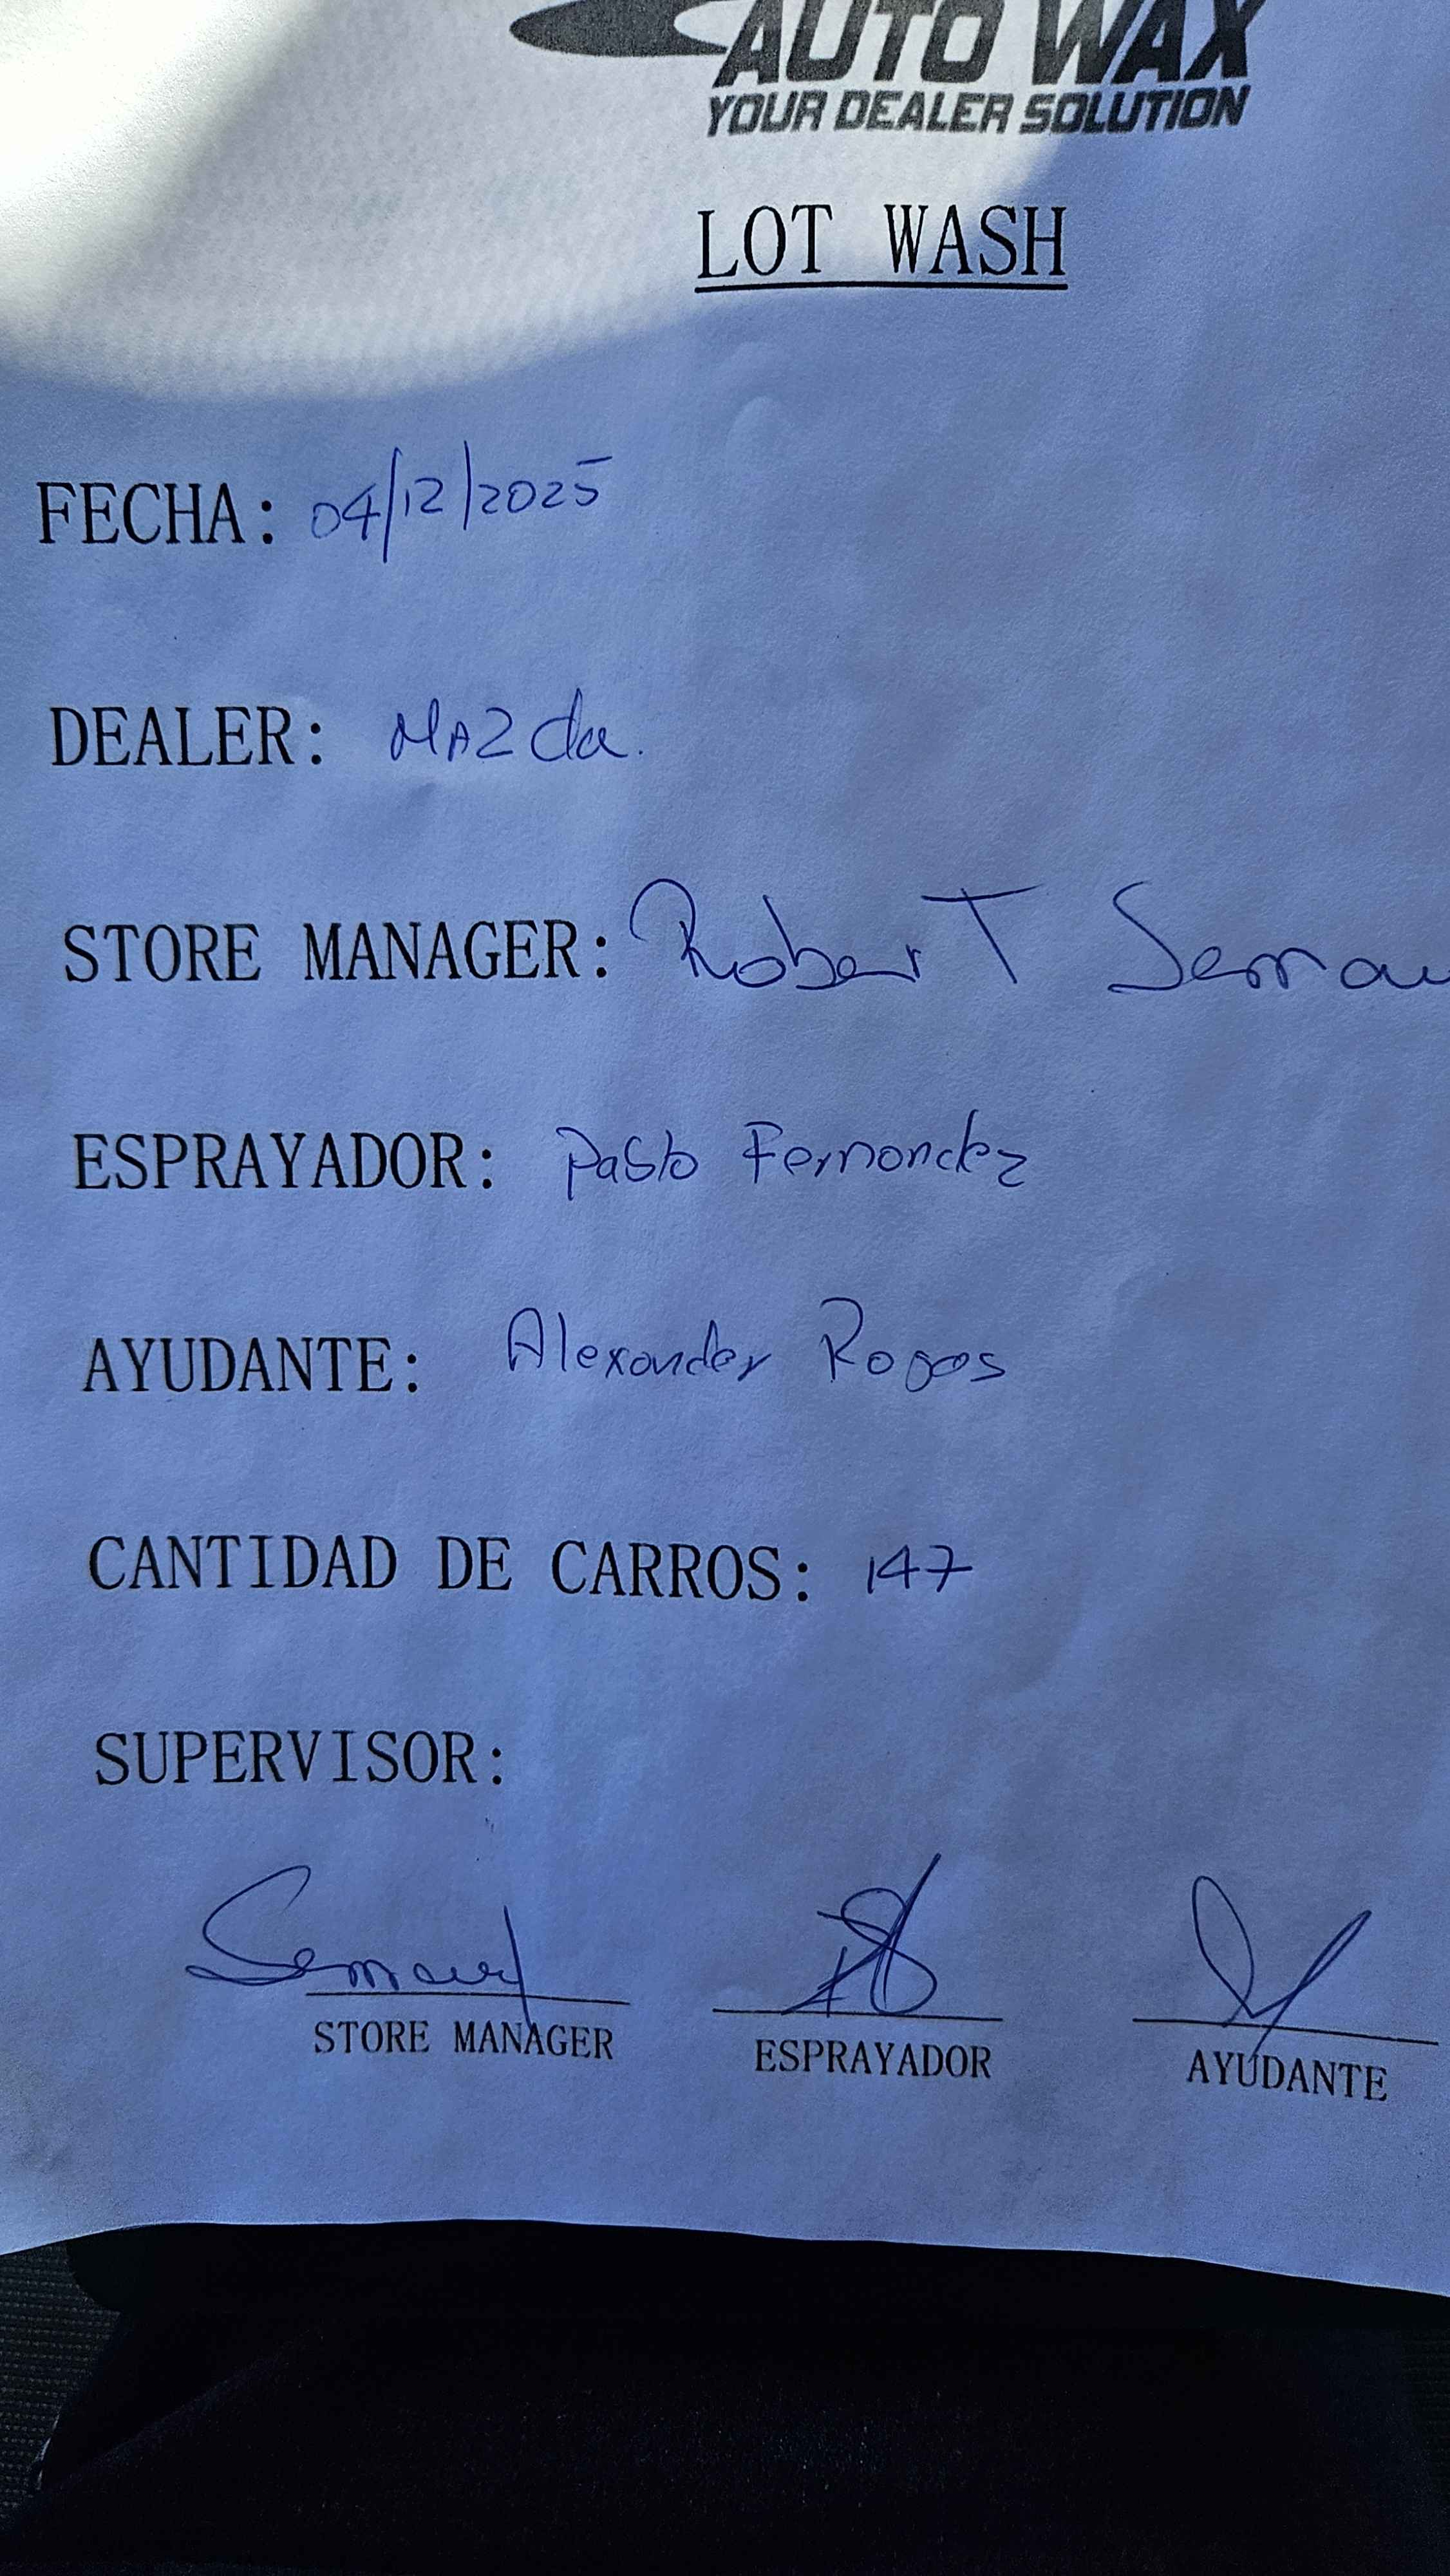 AUTO WAX
YOUR DEALER SOLUTION
LOT WASH
FECHA: 04/12/2025
DEALER: MAZda.
STORE MANAGER: RoberT
ESPRAYADOR: Pablo Fernandez
AYUDANTE: Alexander Rogos
CANTIDAD DE CARROS: 147
SUPERVISOR:
STORE MANAGER ESPRAYADOR AYUDANTE